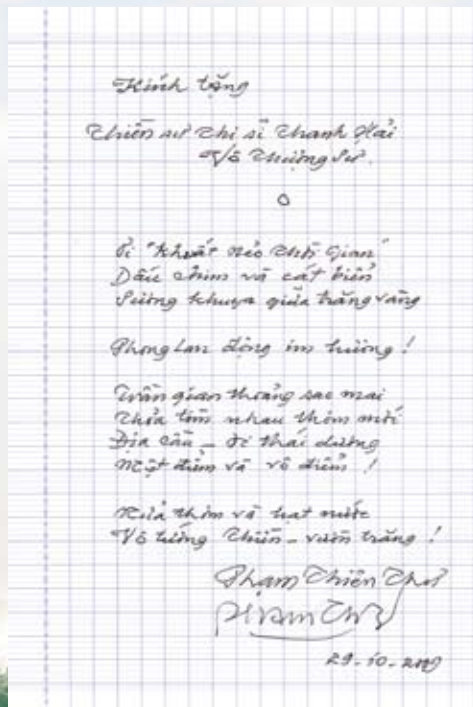 Kính tặng
Thiền sư Thi sĩ Thanh Hải
Vô Thượng Sư.
Đi "Khuất Nẻo Thời Gian"
Dấu chim và cát biển
Sương khuya giữa trăng vàng
Phong Lan động im hương!
Trần gian thoáng sao mai
Thỏa tìm nhau thôn mới
Địa cầu - thái dương
Một điểm và vô điểm!
và hạt nước
Vô tướng Thiền - vườn trăng!
Phạm Thiên Thư
29-10-2009